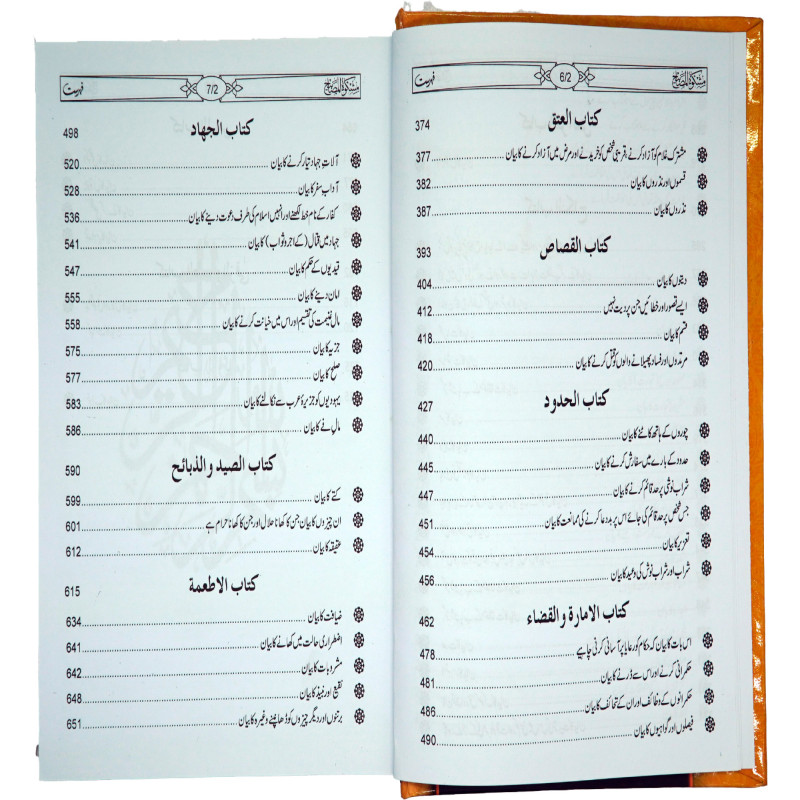 مشکوٰۃ المصابیح 6/2 فہرست
کتاب العتق 374
مشترک غلام کو آزاد کرنے، قریبی شخص کو خریدنے اور مرض میں آزاد کرنے کا بیان 377
قسموں اور نذروں کا بیان 382
نذروں کا بیان 387
کتاب القصاص 393
دیتوں کا بیان 404
ایسے قصور اور خطائیں جن پر دیت نہیں 412
قسم کا بیان 418
مرتدوں اور فساد پھیلانے والوں کو قتل کرنے کا بیان 420
کتاب الحدود 427
چوروں کے ہاتھ کاٹنے کا بیان 440
حدود کے بارے میں سفارش کرنے کا بیان 445
شراب نوشی پر حد قائم کرنے کا بیان 447
جس شخص پر حد قائم کی جائے اس پر بددعا کرنے کی ممانعت کا بیان 451
تعزیر کا بیان 454
شراب اور شراب نوش کی وعید کا بیان 456
کتاب الامارة والقضاء 462
اس بات کا بیان کہ حکام کو رعایا پر آسانی کرنی چاہیے 478
حکمرانی کرنے اور اس سے ڈرنے کا بیان 481
حکمرانوں کے وظائف اور ان کے تحائف کا بیان 486
فیصلوں اور گواہیوں کا بیان 490
مشکوٰۃ المصابیح 7/2 فہرست
کتاب الجهاد 498
آلات جہاد تیار کرنے کا بیان 520
آداب سفر کا بیان 528
کفار کے نام خط لکھنے اور انہیں اسلام کی طرف دعوت دینے کا بیان 536
جہاد میں قتال (کے اجر و ثواب) کا بیان 541
قیدیوں کے حکم کا بیان 547
امان دینے کا بیان 555
مال غنیمت کی تقسیم اور اس میں خیانت کرنے کا بیان 558
جزیہ کا بیان 575
صلح کا بیان 577
یہودیوں کو جزیرۂ عرب سے نکالنے کا بیان 583
مالِ فے کا بیان 586
کتاب الصيد والذبائح 590
کتے کا بیان 599
ان چیزوں کا بیان جن کا کھانا حلال اور جن کا کھانا حرام ہے 601
عقیقہ کا بیان 612
کتاب الاطعمة 615
ضیافت کا بیان 634
اضطراری حالت میں کھانے کا بیان 641
مشروبات کا بیان 642
نقیع اور نبیذ کا بیان 648
برتنوں اور دیگر چیزوں کو ڈھانپنے وغیرہ کا بیان 651